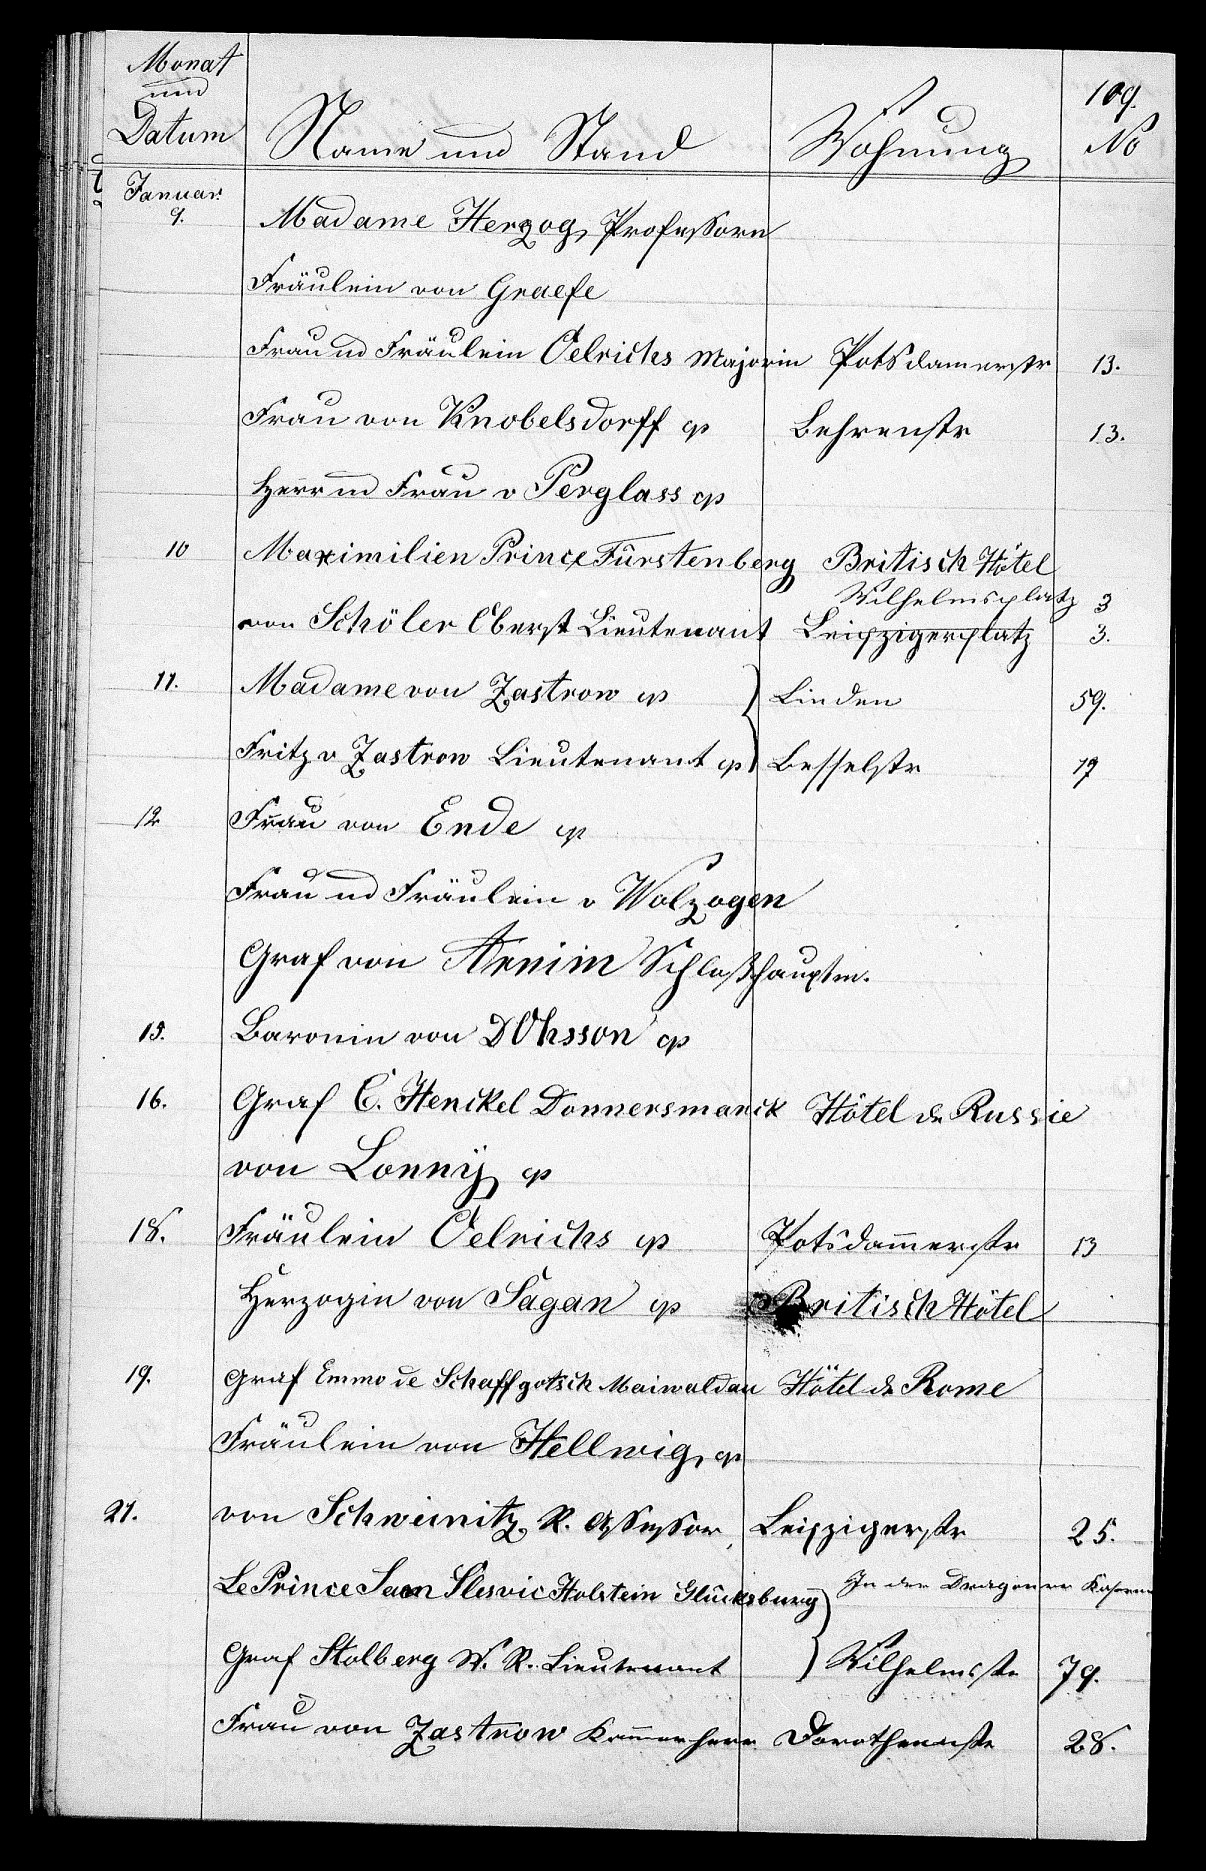 109.
Monat und Datum Name und Stand Wohnung No
Januar.
9. Madame Herzog, Professorn
Fräulein von Graefe
Frau und Fräulein Oelrichs Majorin Potsdamerstr 13.
Frau von Knobelsdorff cp Behrenstr 13.
Herr und Frau v Perglass cp
10 Maximilien Prince Fürstenberg Britisch Hôtel
Wilhelmsplatz 3
von Schöler Oberst Lieutenant Leipzigerplatz 3.
11. Madame von Zastrow cp Linden 59.
Fritz v Zastrow Lieutenant cp Besselstr 17
12 Frau von Ende cp
Frau und Fräulein v Wolzogen
Graf von Arnim Schloßhauptm.
15. Baronin von D'Ohsson cp
16. Graf C. Henckel Donnersmarck Hôtel de Russie
von Lonnÿ cp
18. Fräulein Oelrichs cp Potsdam̅erstr 13
Herzogin von Sagan cp Britisch Hôtel
19. Graf Emmo de Schaffgotsch Maiwaldau Hôtel de Rome
Fräulein von Hellwig, cp
21. von Schweinitz R. Assessor, Leipzigerstr 25.
Le Prince Slesvic Holstein Glücksburg In der Dragoner Kaserne
Graf Stolberg W. R. Lieutenant Wilhelmstr 79.
Frau von Zastrow Kam̅erherr Dorotheenstr 28.